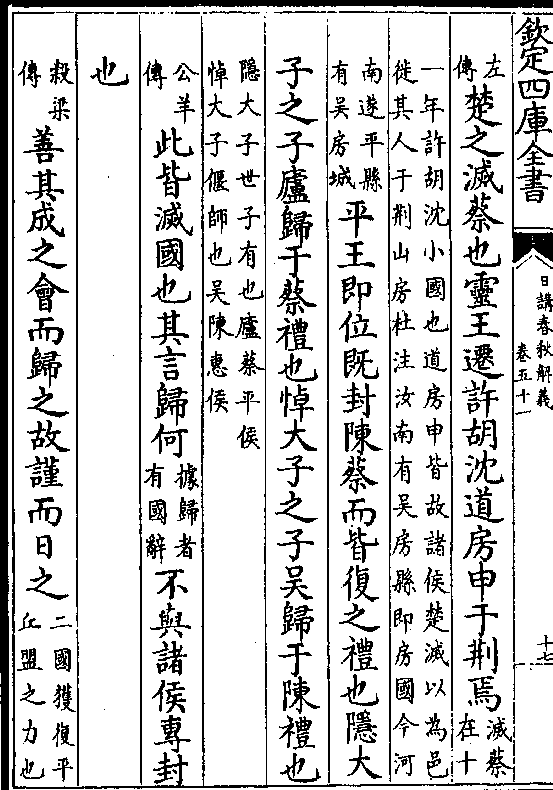 欽定四庫全書
日講春秋解義
卷五十一
十七
左傳楚之滅蔡也靈王遷許胡沈道房申于荆焉滅蔡在十
一年許胡沈小國也道房申皆故諸侯楚滅以為邑
徙其人于荆山房杜注汝南有吳房縣即房國今河
南遂平縣有吳房城平王即位既封陳蔡而皆復之禮也隱大
子之子廬歸于蔡禮也悼大子之子吳歸于陳禮也
隱大子世子有也廬蔡平侯
悼大子偃師也吳陳惠侯
公羊傳此皆滅國也其言歸何據歸者有國辭不與諸侯專封
也
穀梁傳善其成之會而歸之故謹而日之二國獲復平丘盟之力也